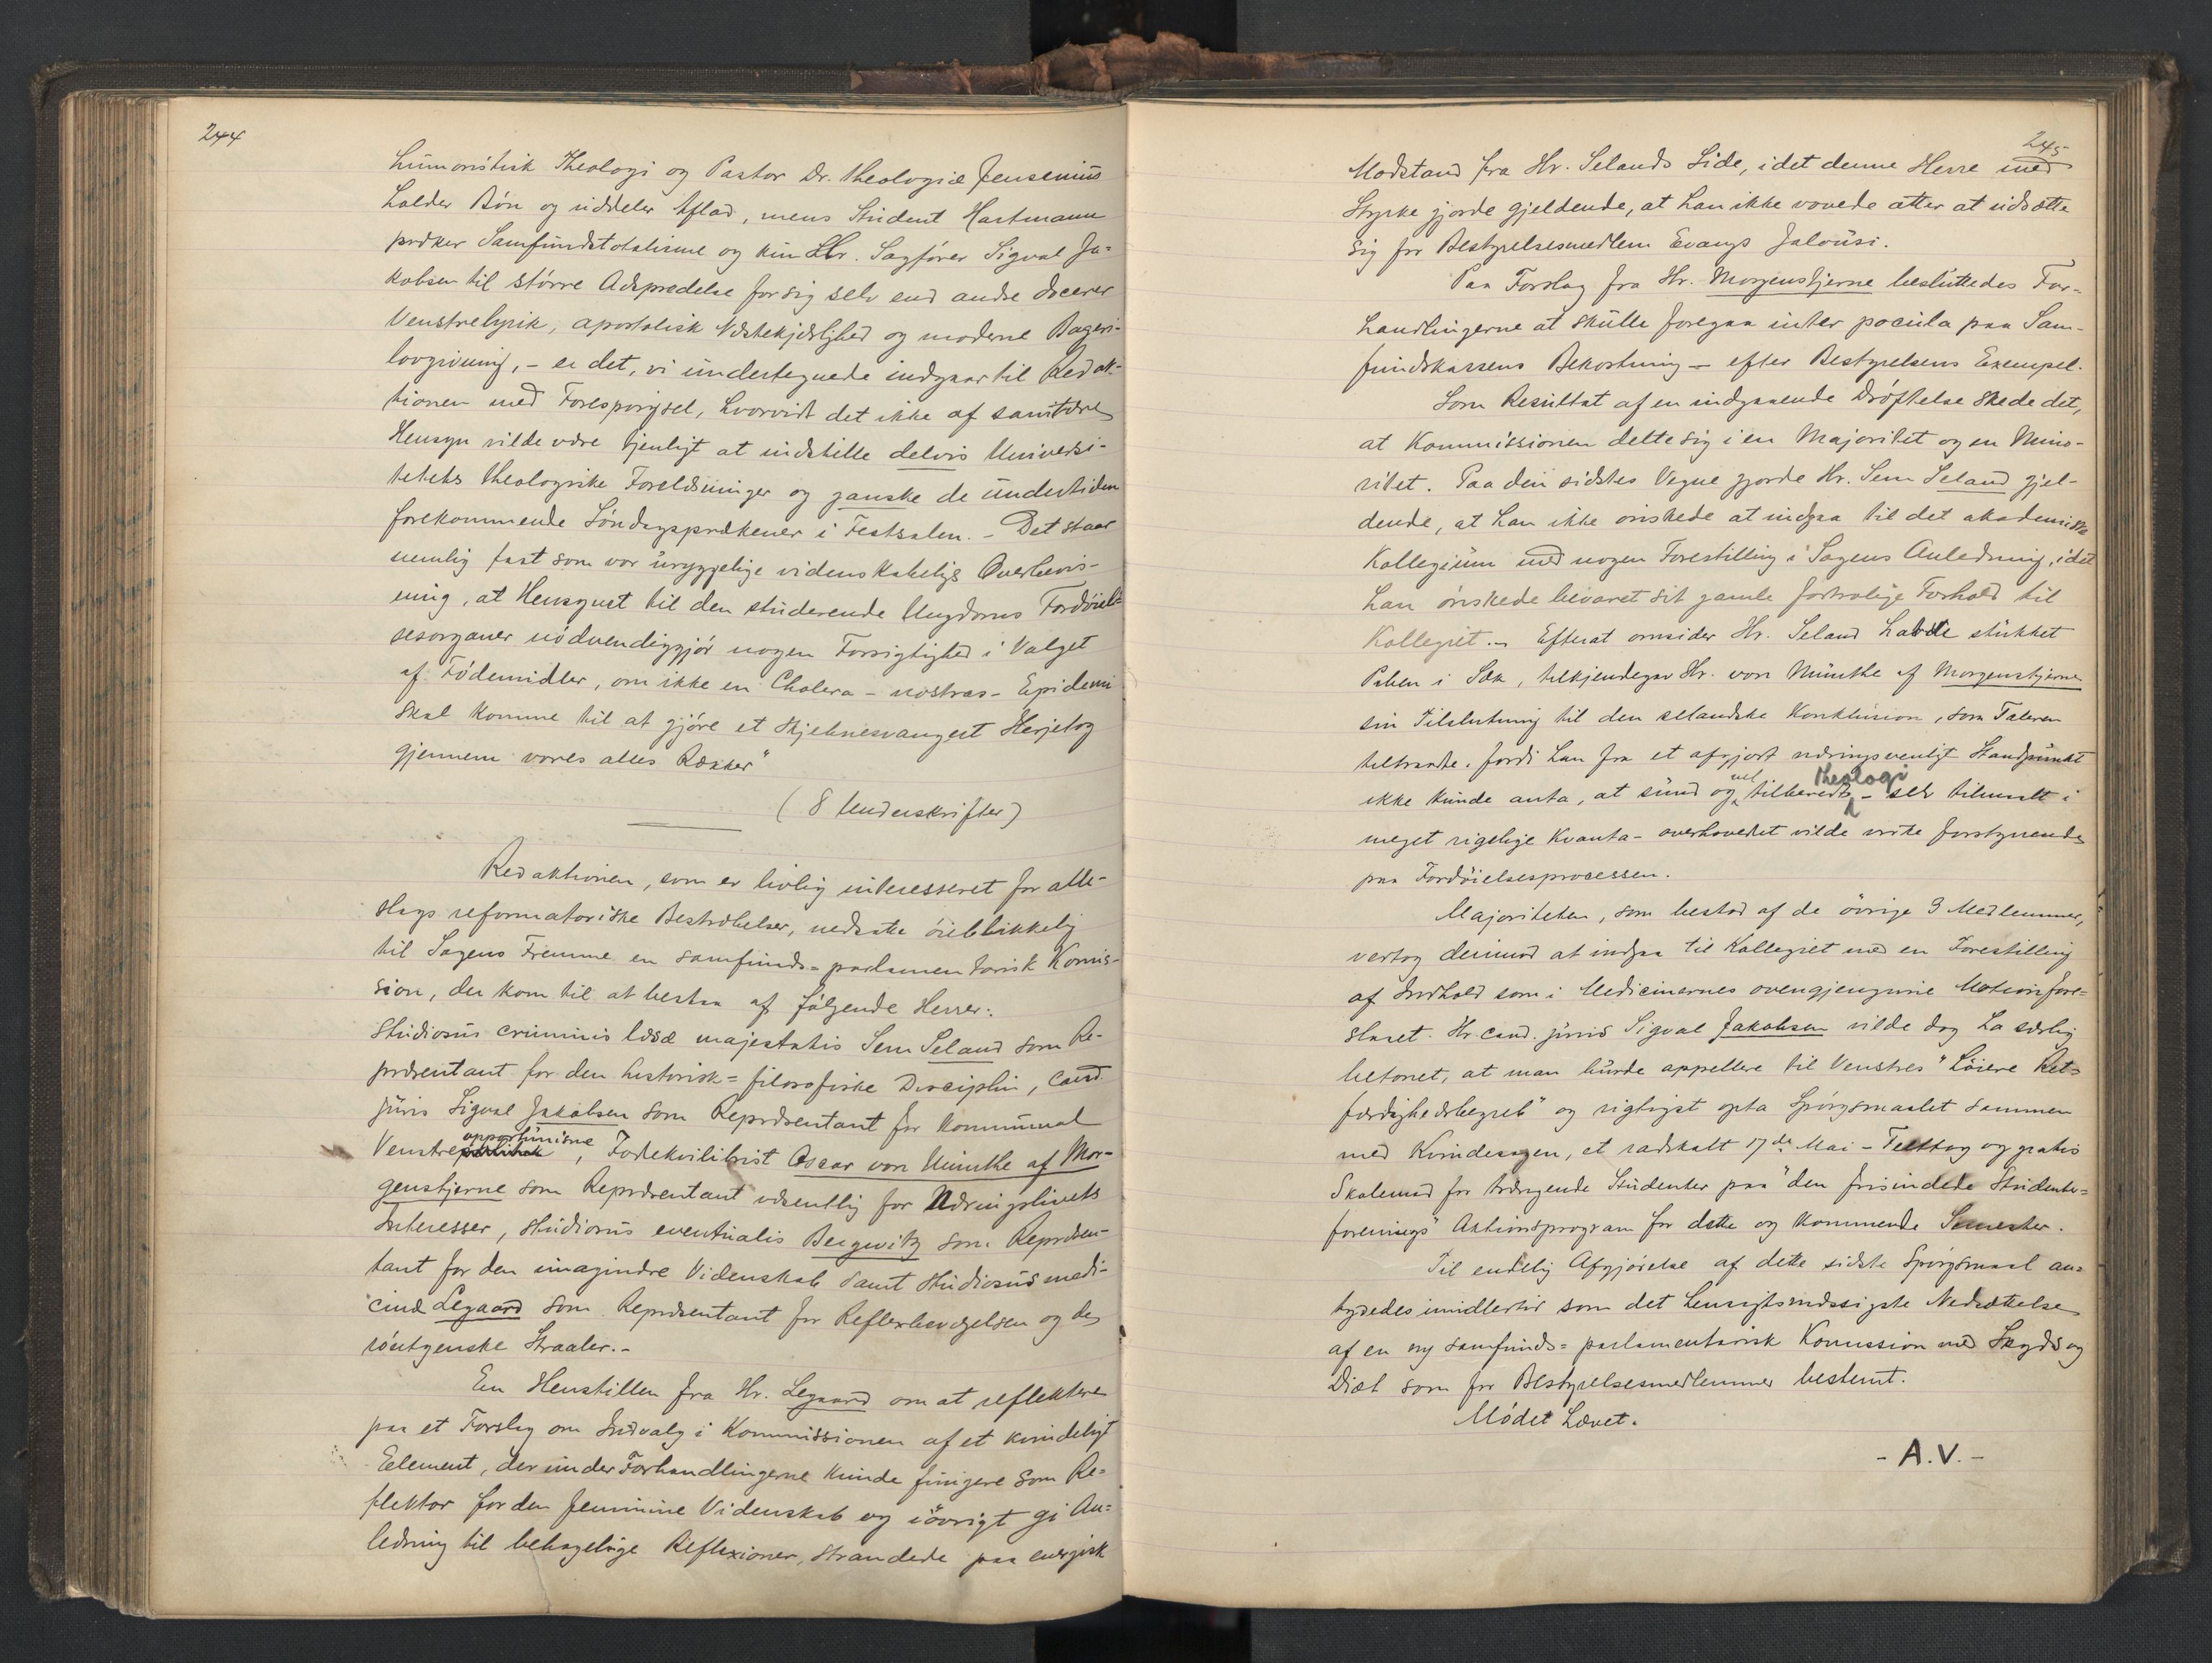 244
humoristisk Theologi og Pastor Dr. theologiæ Jensenius
holder Bøn og uddeler Aflad, mens Student Hartmann
præker Samfundstotalisme og kun Hr. Sagfører Sigval Ja=
kobsen til større Adspredelse for sig selv end andre docerer
Venstrelyrik, apostolisk Næstekjærlighed og moderne Bageri-
lovgivning, – er det, vi undertegnede indgaar til Redak-
tionen med Forespørgsel, hvorvidt det ikke af sanitære
Hensyn vilde være tjenligt at indstille delvis Universi-
tetets theologiske Forelæsninger og ganske de undertiden
forekommende Søndagsprækener i Festsalen. – Det staar
nemlig fast som vor uryggelige videnskabelige Overbevis-
ning, at Hensynet til den studerende Ungdoms Fordøiel=
sesorganer nødvendiggjør nogen Forsigtighed i Valget
af Fødemidler, om ikke en Cholera-nostras-Epidemi
skal komme til at gjøre et skjebnesvangert Herjetog
gjennem vores alles Rækker"
(8 Underskrifter)
Redaktionen, som er livlig interesseret for alle-
slags reformatoriske Bestræbelser, nedsatte øieblikkelig
til Sagens Fremme en samfunds=parlamentarisk Komis-
sion, der kom til at bestaa af følgende Herrer:
Studiosus criminis læsæ majestatis Sem Seland som Re-
præsentant for den historisk=filosofiske Disciplin, Cand.
juris Sigval Jakobsen som Repræsentant for kommunal
Venstreopportunisme, Fodekvilibrist Oscar von Munthe af Mor-
genstjerne som Repræsentant væsentlig for Næringslivets
Interesser, studiosus eventualis Bergwitz som Repræsen-
tant for den imaginære Videnskab samt studiosus medi-
cinæ Legaard som Repræsentant for Reflexbevægelsen og de
røntgenske Straaler.–
En Henstillen fra Hr. Legaard om at reflektere
paa et Forslag om Indvalg i Kommissionen af et kvindeligt
Element, der under Forhandlingerne kunde fungere som Re=
flektor for den feminine Videnskab og iøvrigt gi An=
ledning til behagelige Reflexioner, strandede paa energisk
245
Modstand fra Hr. Selands Side, idet denne Herre med
Styrke gjorde gjeldende, at han ikke vovede atter at udsætte
sig for Bestyrelsesmedlem Evangs Jalousi.
Paa Forslag fra Hr. Morgenstjerne besluttedes For-
handlingerne at skulle foregaa inter pocula paa Sam-
fundskassens Bekostning – efter Bestyrelsens Exempel.
Som Resultat af en indgaaende Drøftelse skede det,
at Kommissionen delte sig i en Majoritet og en Mino-
ritet. Paa den sidstes Vegne gjorde Hr. Sem Seland gjel-
dende, at han ikke ønskede at indgaa til det akademiske
Kollegium med nogen Forestilling i Sagens Anledning, idet
han ønskede bevaret sit gamle fortrolige Forhold til
Kollegiet. – Efterat omsider Hr. Seland havde stukket
Piben i Sæk, tilkjendegav Hr. von Munthe af Morgenstjerne
sin Tilslutning til den selandske Konklusion, som Taleren
tiltraadte, fordi han fra et afgjort næringsvenligt Standpunkt
ikke kunde anta, at sund og vel tilberedt theologi – selv tilmaalt i
meget rigelige Kvanta – overhovedet vilde virke forstyrrende
paa Fordøielsesprocessen.
Majoriteten, som bestod af de øvrige 3 Medlemmer,
vertog derimod at indgaa til Kollegiet med en Forestilling
af Indhold som i Medicinernes ovengjengivne Motion fore=
slaaet. Hr. cand. juris Sigval Jakobsen vilde dog ha særlig
betonet, at man burde appellere til Venstres "høiere Ret=
færdighedsbegreb" og rigtigst opta Spørgsmaalet sammen
med Kvindesagen, et radikalt 17de Mai-Festtog og gratis
Skolemad for trængende Studenter paa "den frisindede Studenter=
forenings" Aktionsprogram for dette og kommende Semester.
Til endelig Afgjørelse af dette sidste Spørgsmaal an=
tydedes imidlertid som det hensigtsmæssigste Nedsættelse
af en ny samfunds=parlamentarisk Komission med Skyds og
Diæt som for Bestyrelsesmedlemmer bestemt.
Mødet hævet.
- A.V. -